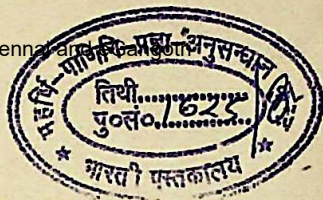 ennai and eGangotri
महर्षि-पाणिनि-महा-अनुसन्धान
तिथी..................
पु०सं०.1625.........
भारती पुस्तकालय